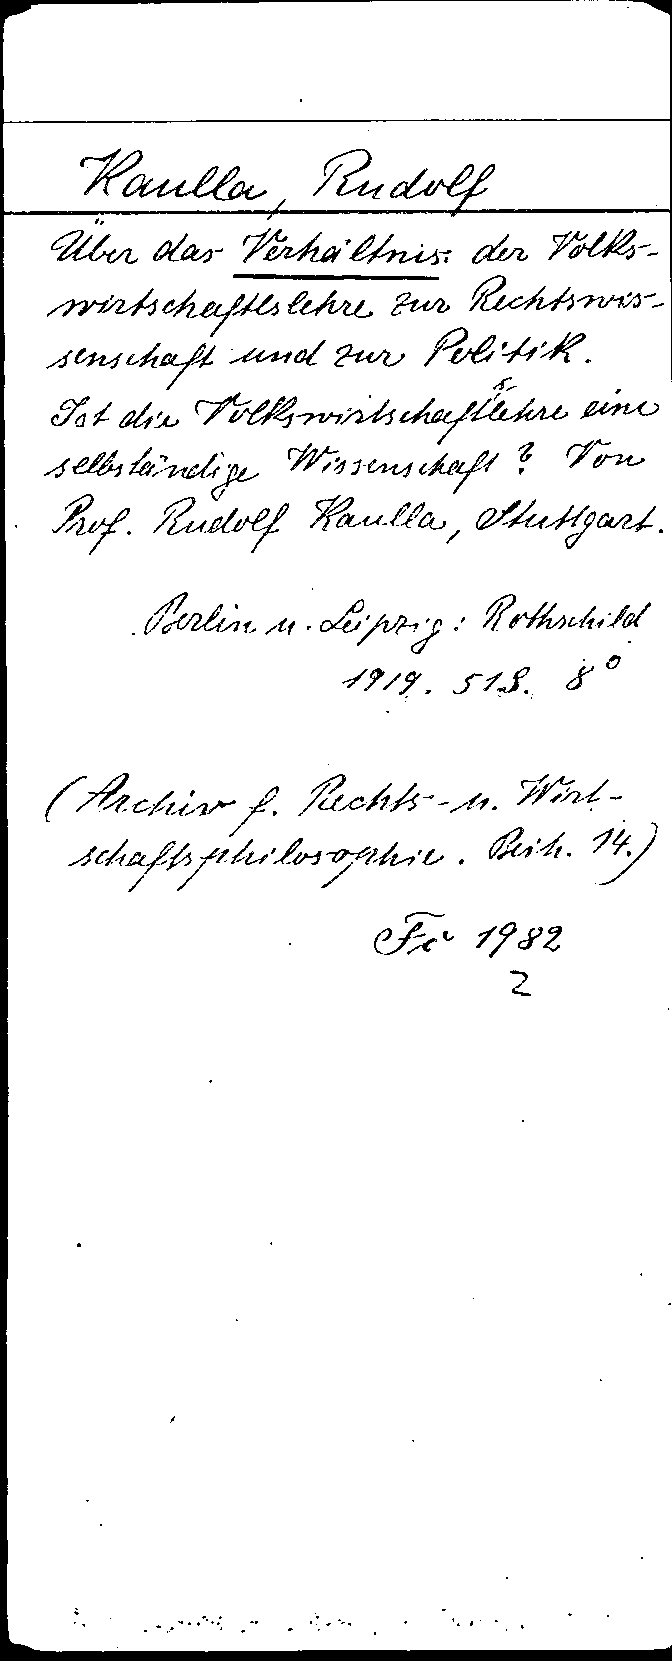 Kaulla, Rudolf
Über das Verhältnis der Volks-
wirtschaftslehre zur Rechtswis-
senschaft und zur Politik.
Ist die Volkswirtschaftslehre eine
selbständige Wissenschaft? Von
Prof. Rudolf Kaulla, Stuttgart.
Berlin u. Leipzig: Rothschild
1919. 51 S. 8°
(Archiv f. Rechts- u. Wirt-
schaftsphilosophie. Beih. 14.)
Fc 1982
2